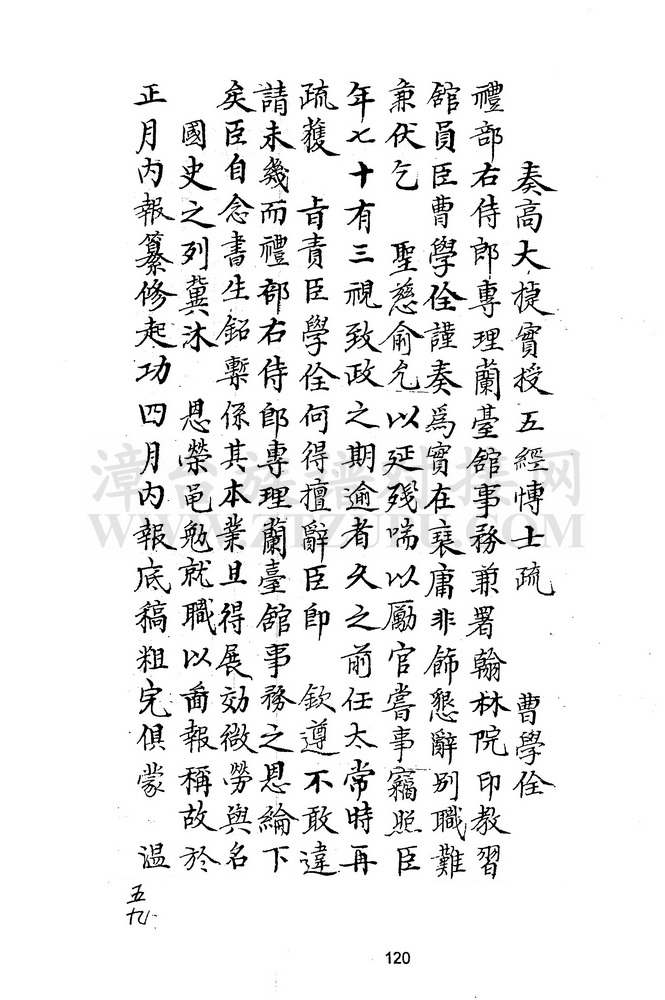 奏高大捷實授五經博士疏　曹學佺
禮部右侍郎專理蘭臺館事務兼署翰林院印教習
館員臣曹學佺謹奏爲實在衰庸非飾懇辭別職難
兼伏乞　聖慈俞允以延殘喘以勵官嘗事竊照臣
年七十有三視致政之期逾者久之前任太常時再
疏獲　旨責臣學佺何得擅辭臣卽　欽遵不敢違
請未幾而禮部右侍郎專理蘭臺館事務之恩綸下
矣臣自念書生鉛槧係其本業且得展効微勞與名
國史之列冀沐　恩榮黽勉就職以圖報稱故於
正月內報纂修起功四月內報底稿粗完俱蒙　溫
五九
120
漳台族譜對接網
WWW.ZTZUPU.COM